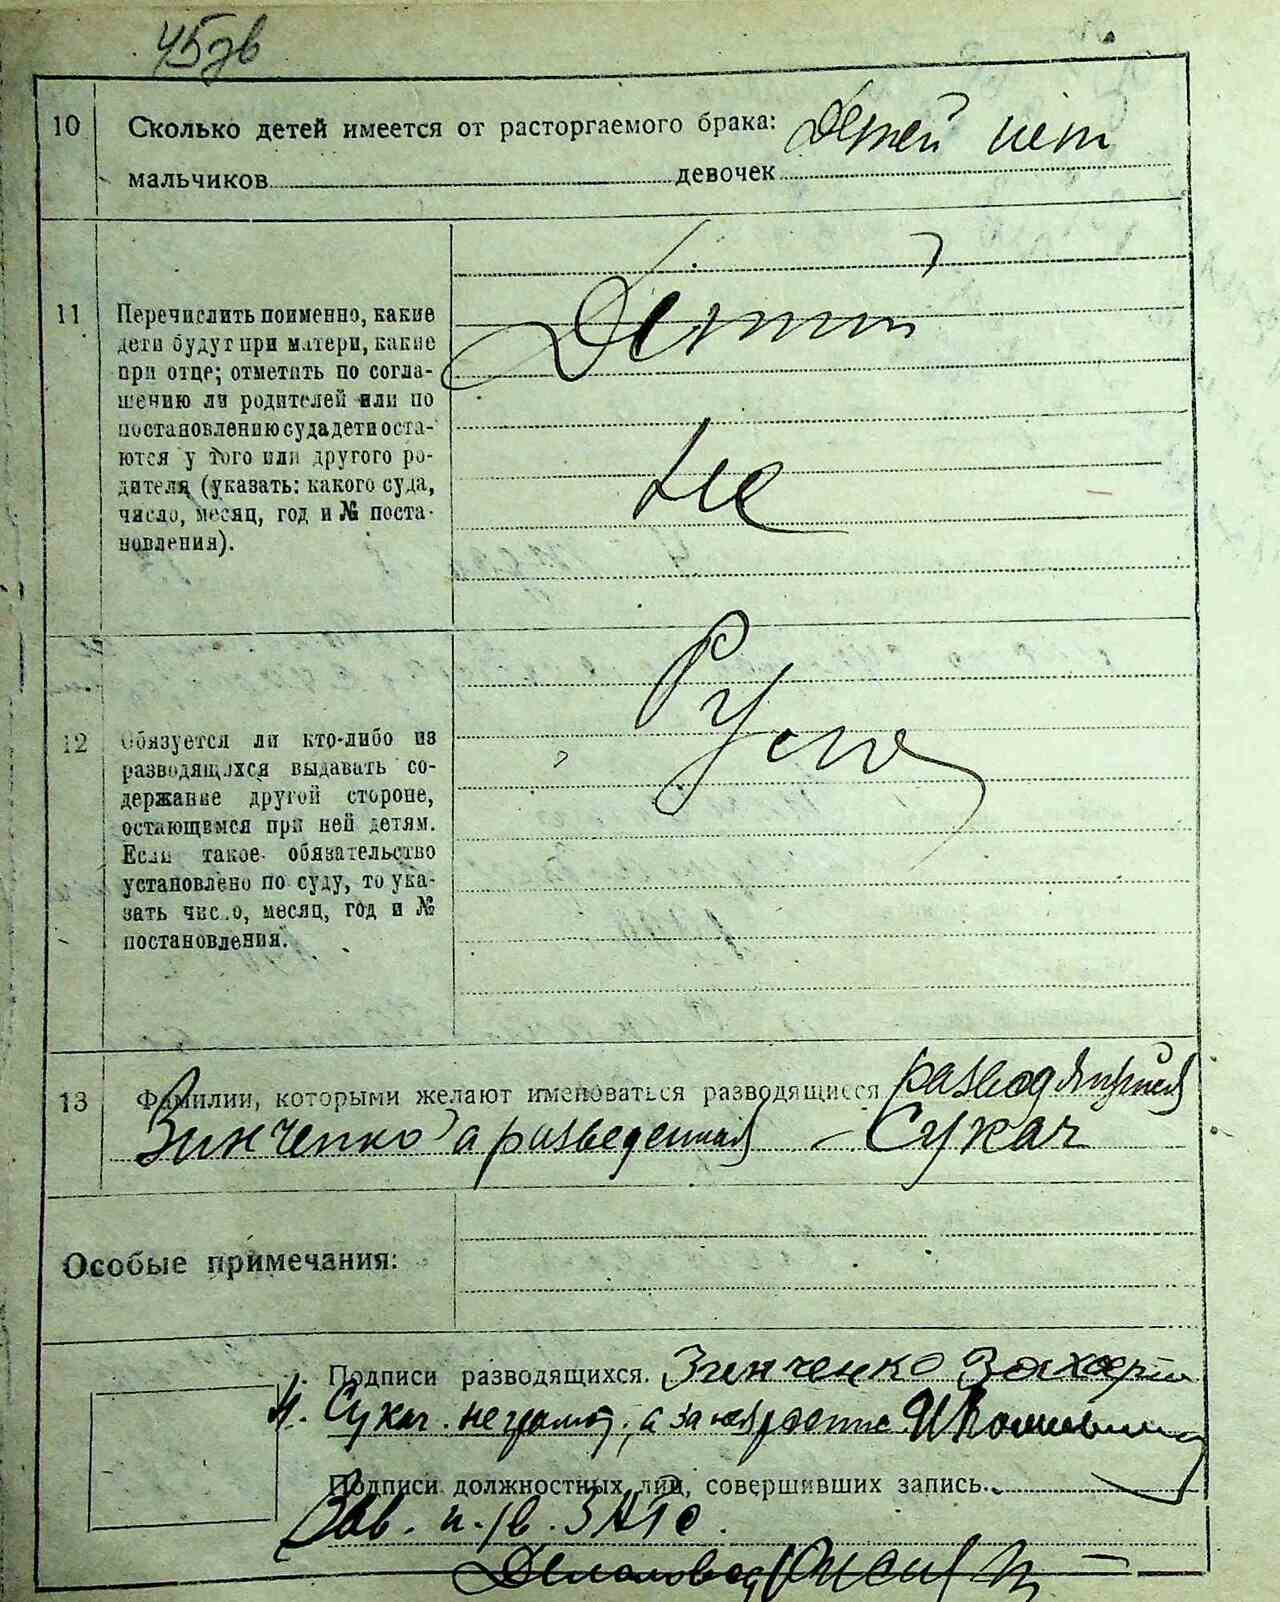 45 дв
10 Сколько детей имеется от расторгаемого брака: Детей нет
мальчиков девочек
11 Перечислить поименно, какие
дети будут при матери, какие
при отце; отметить по согла-
шению ли родителей или по
постановлению суда дети оста-
ются у того или другого ро-
дителя (указать: какого суда,
число, месяц, год и № поста-
новления).
Не
12 Обязуется ли кто-либо из
разводящихся выдавать со-
держание другой стороне,
остающемся при ней детям.
Если такое обязательство
установлено по суду, то ука-
зать число, месяц, год и №
постановления.
13 Фамилии, которыми желают именоваться разводящиеся разводящийся
Зинченко а разведенная - Сукач
Особые примечания:
Подписи разводящихся. Зинченко Захарий
Сукач неграмот, а за нея
Подписи должностных лиц, совершивших запись.
Зав. п/в. ЗАГС
Деловод